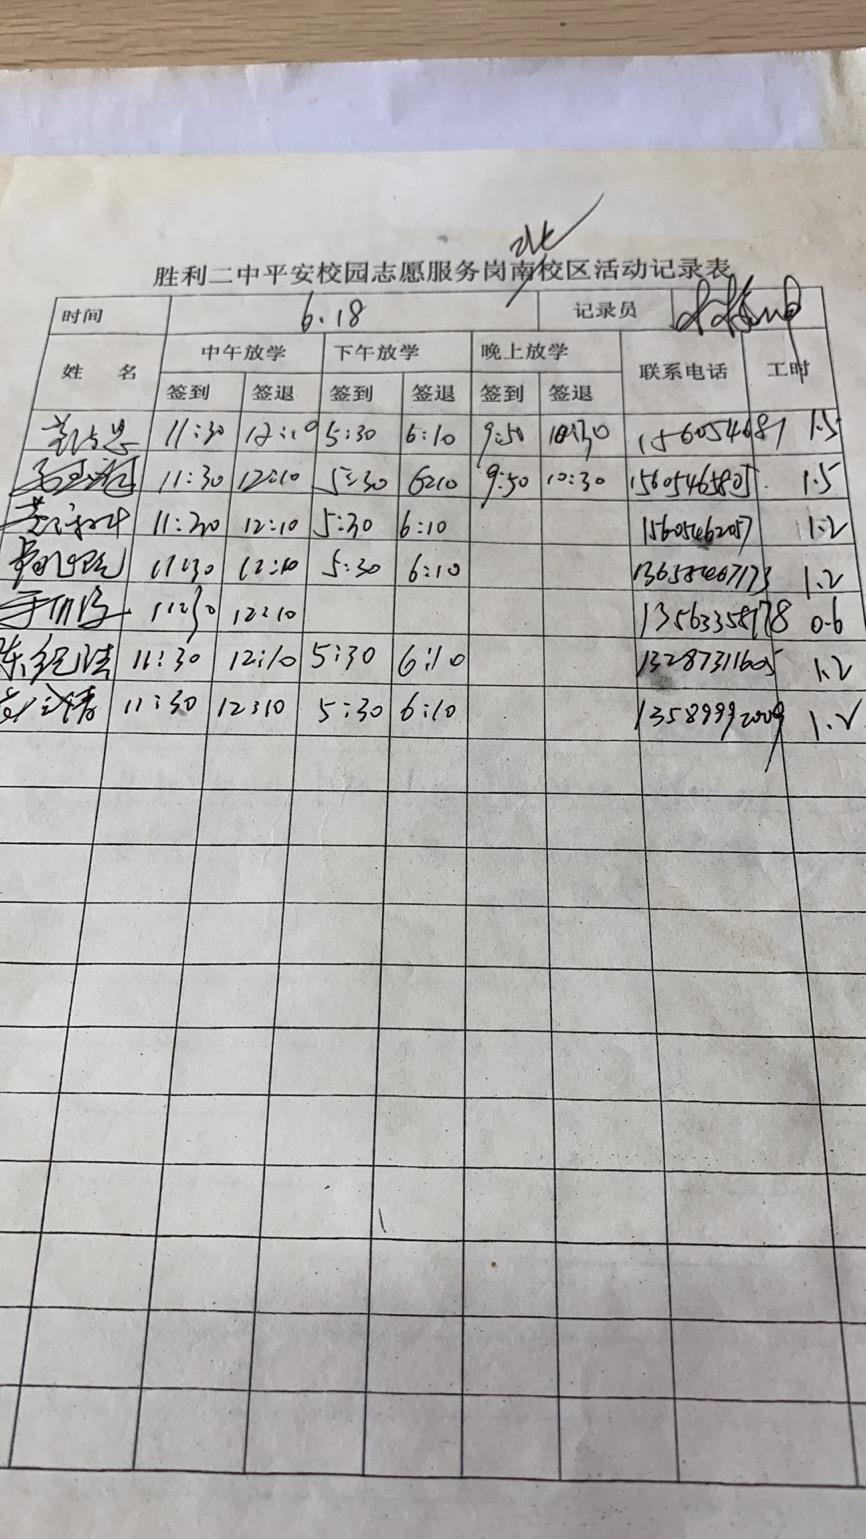 北
胜利二中平安校园志愿服务岗南校区活动记录表
时间 6.18 记录员
姓 名 中午放学 下午放学 晚上放学 联系电话 工时
签到 签退 签到 签退 签到 签退
11:30 12:10 5:30 6:10 9:50 10:30 1.5
11:30 12:10 5:30 6:10 9:50 10:30 15605465805 1.5
11:30 12:10 5:30 6:10 15605462057 1.2
11:30 12:10 5:30 6:10 1.2
11:30 12:10 13563358978 0.6
陈纪洪 11:30 12:10 5:30 6:10 13287311605 1.2
11:30 12:10 5:30 6:10 13589992009 1.2